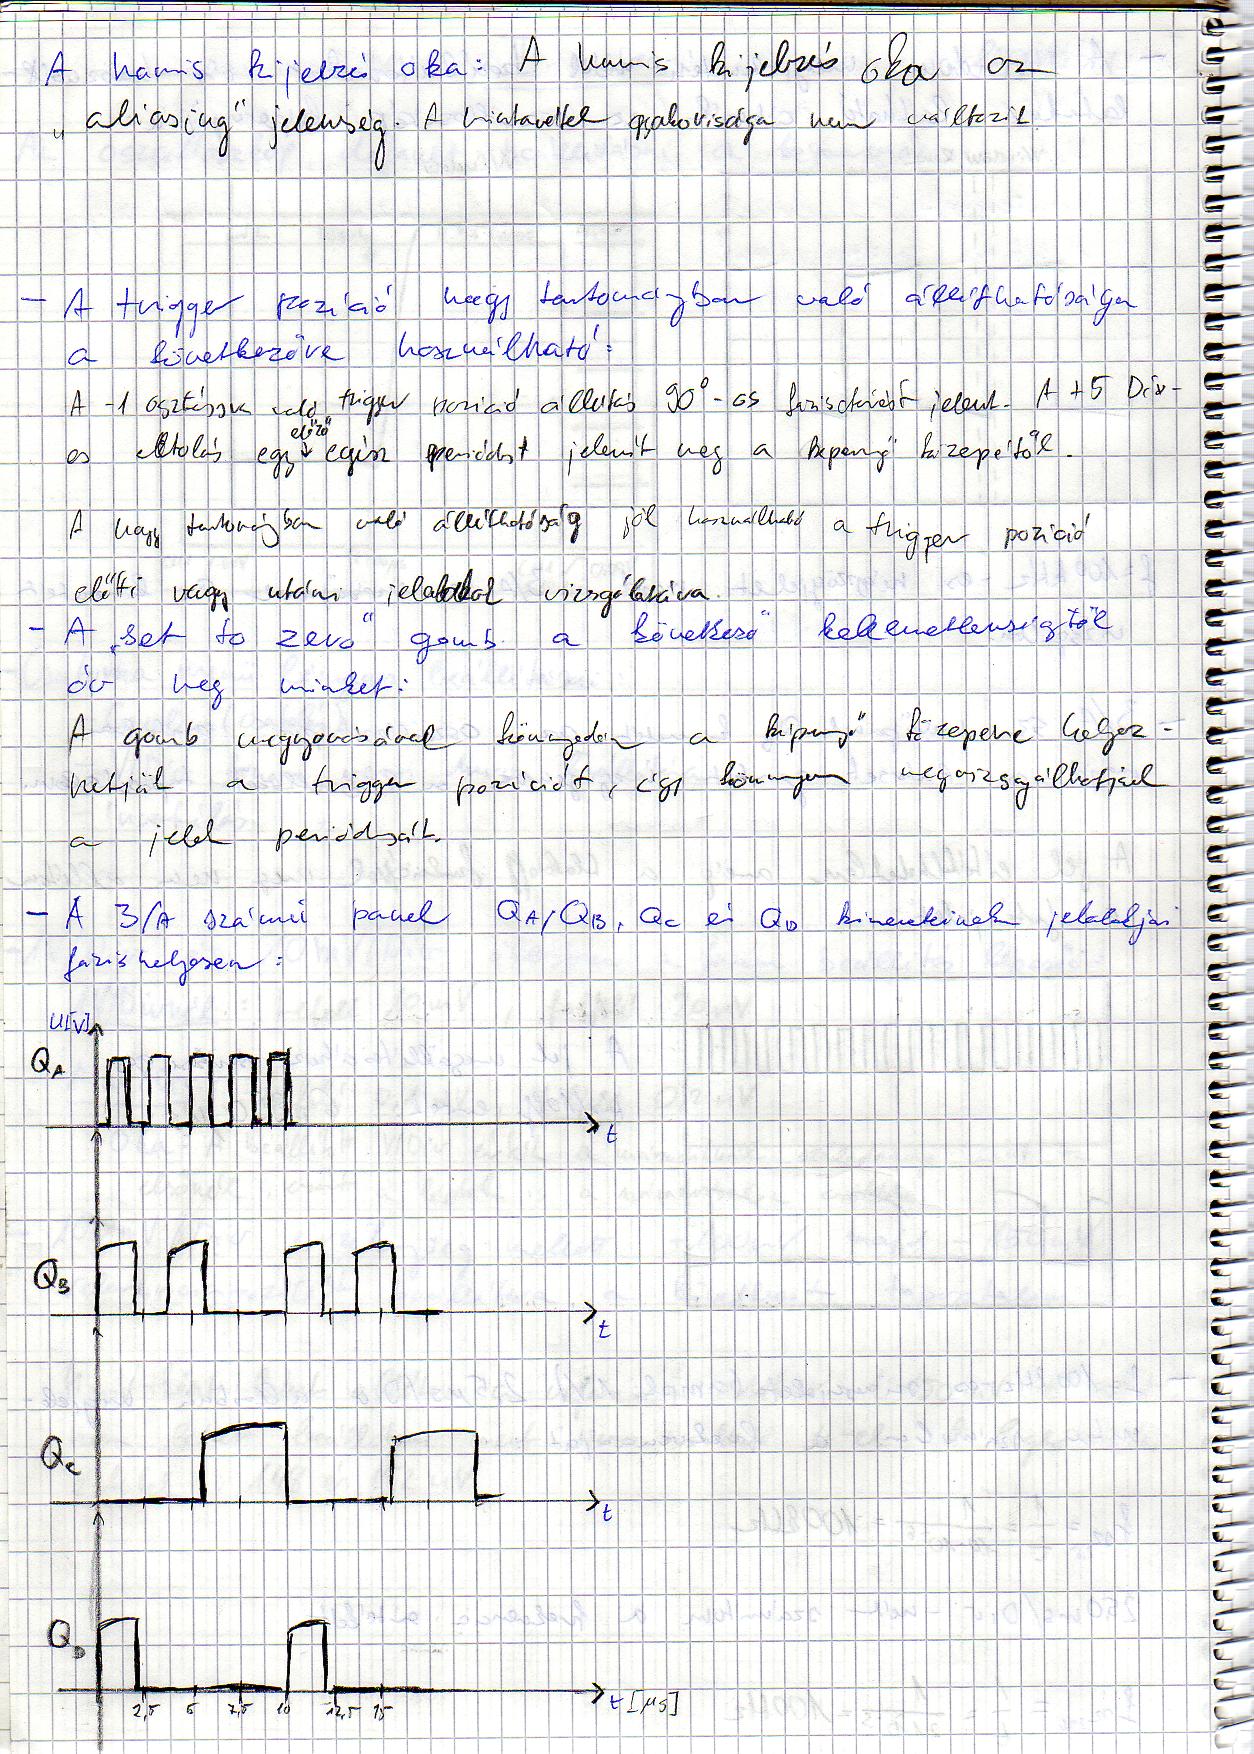 A hamis kijelzés oka: A hamis kijelzés oka az
„aliasing" jelenség. A mintavétel gyakorisága nem változik
- A trigger pozíció nagy tartományban való állíthatósága
a következőre használható:
A -1 osztással való trigger pozíció állítás 90°-os fáziseltérést jelent. A +5 Div-
os eltolás egy előző egész periódust jelenít meg a képernyő közepétől.
A nagy tartományban való állíthatóság jól használható a trigger pozíció
előtti vagy utáni jelalakok vizsgálatára.
- A „set to zero" gomb a következő kellemetlenségtől
óv meg minket:
A gomb megnyomásával könnyedén a képernyő közepére helyez-
hetjük a trigger pozíciót, így könnyen megvizsgálhatjuk
a jelek periódusait.
- A 3/A számú panel QA, QB, QC és QD kimeneteinek jelalakjai
fázishelyesen:
U[V]
QA
t
QB
t
QC
t
QD
2,5 5 7,5 10 12,5 15 t [µs]